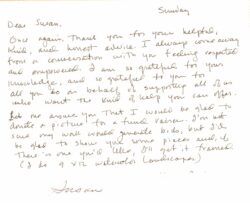 Sunday
Dear Susan,
Once again, Thank you for your helpful,
kind, and honest advice. I always come away
from a conversation with you feeling respected
and empowered. I am so grateful for your
knowledge, and so grateful to you for
all you do on behalf of supporting all of us
who want the kind of help you can offer.
Let me assure you that I would be glad to
donate a picture for a fund raiser. I'm not
sure my wall would generate bids, but I'd
be glad to show you some pieces and, if
There is one you'd like, I'll get it framed.
(I do 9 x 12 watercolor Landscapes)